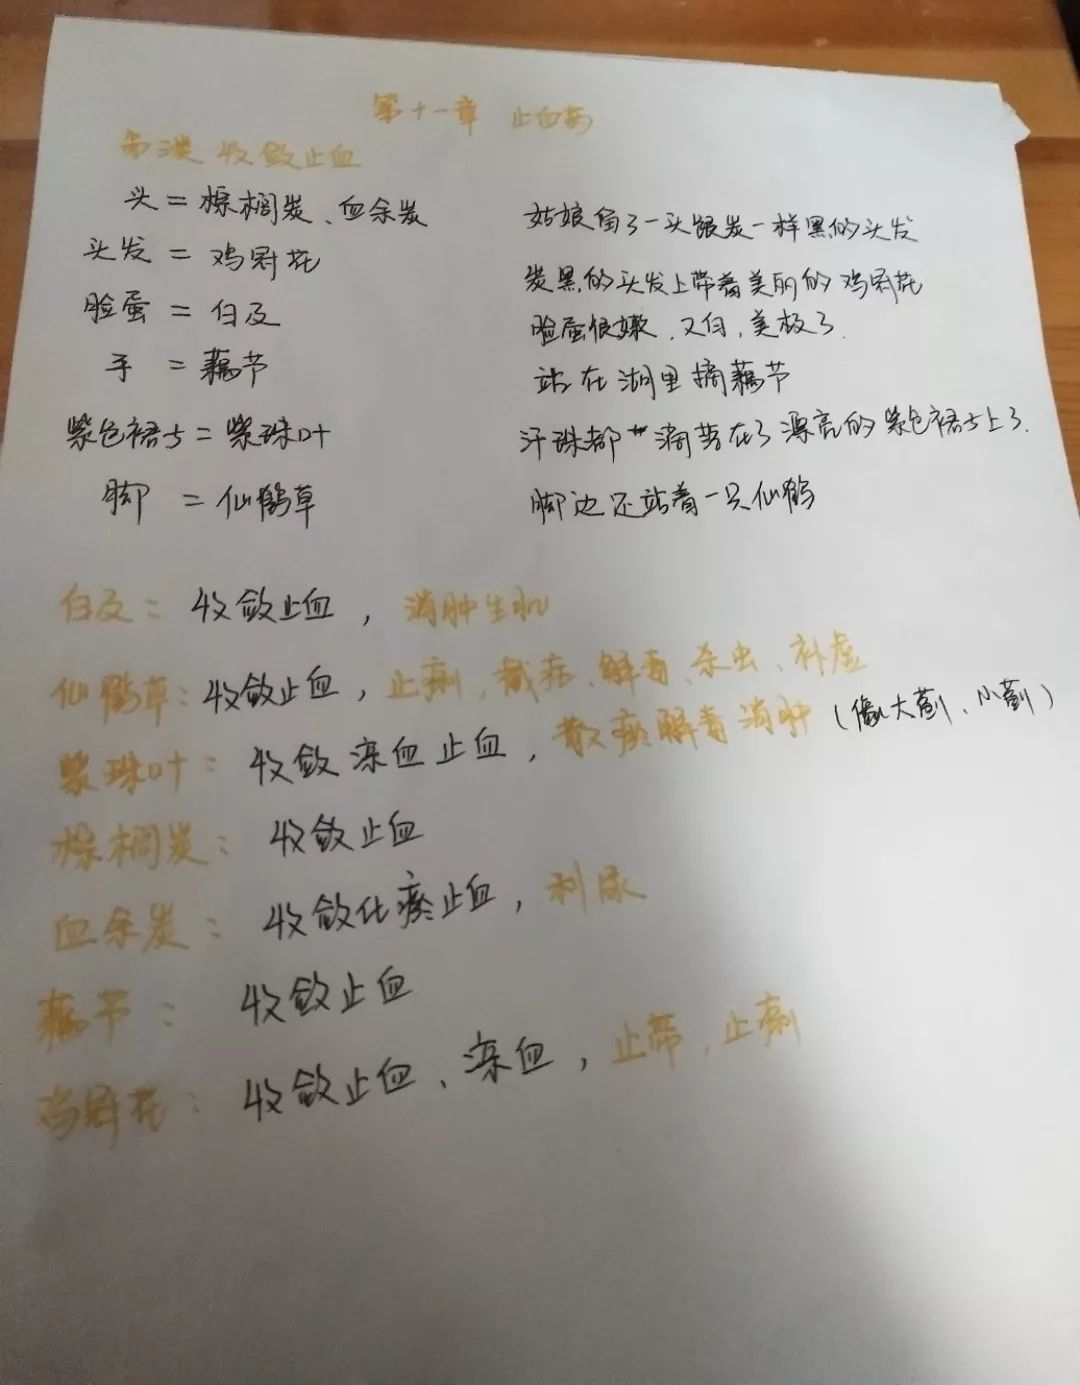 第十一章 止血药
收敛止血
头 = 棕榈炭、血余炭 姑娘有了一头跟炭一样黑的头发
头发 = 鸡冠花 炭黑的头发上带着美丽的鸡冠花
脸蛋 = 白及 脸蛋很嫩,又白,美极了.
手 = 藕节 站在湖里摘藕节
紫色裙子 = 紫珠叶 汗珠都滴落在了漂亮的紫色裙子上了.
脚 = 仙鹤草 脚边还站着一只仙鹤
白及: 收敛止血, 消肿生肌
仙鹤草: 收敛止血, 止痢, 截疟、解毒、杀虫、补虚
紫珠叶: 收敛凉血止血, 散瘀解毒消肿 (像大蓟、小蓟)
棕榈炭: 收敛止血
血余炭: 收敛化瘀止血, 利尿
藕节: 收敛止血
鸡冠花: 收敛止血、凉血, 止带, 止痢